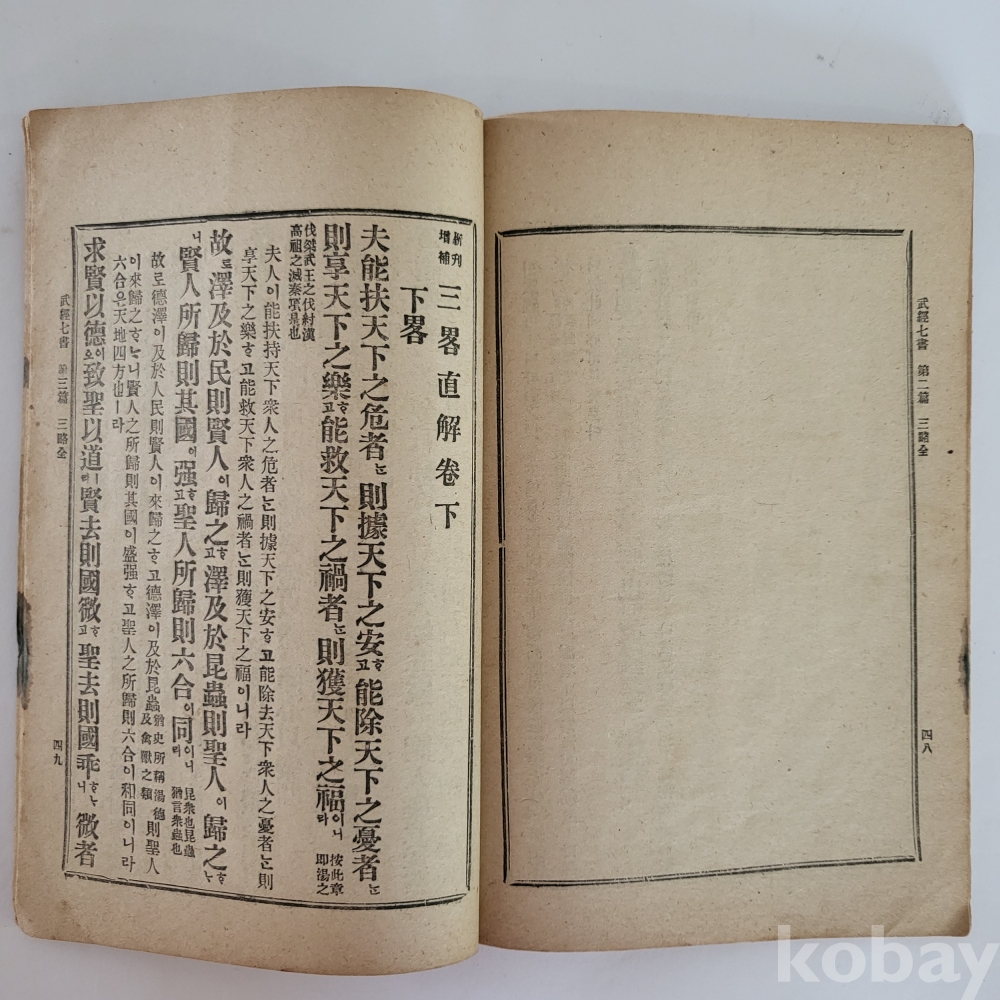 武經七書 第二篇 三略全
四八
新刊增補 三畧直解卷下
下畧
夫能扶天下之危者는則據天下之安ᄒᆞ고能除天下之憂者는
則享天下之樂ᄒᆞ고能救天下之禍者는則獲天下之福이니라 按此章即湯之
伐桀武王之伐紂漢高祖之滅秦項是也
夫人이能扶持天下衆人之危者는則據天下之安ᄒᆞ고能除去天下衆人之憂者는則
享天下之樂ᄒᆞ고能救天下衆人之禍者는則獲天下之福이니라
故로澤及於民則賢人이歸之ᄒᆞ고澤及於昆蟲則聖人이歸之ᄒᆞ
니賢人所歸則其國이强ᄒᆞ고聖人所歸則六合이同이니라 昆衆也昆蟲猶言衆蟲也
故로德澤이及於人民則賢人이來歸之ᄒᆞ고德澤이及於昆蟲及禽獸之類猶史所稱湯德則聖人
이來歸之ᄒᆞᄂᆞ니賢人之所歸則其國이盛强ᄒᆞ고聖人之所歸則六合이和同이니라
六合은天地四方也ㅣ라
求賢以德이오致聖以道ㅣ라賢去則國微ᄒᆞ고聖去則國乖ᄒᆞᄂᆞ니微者
武經七書 第三篇 三略全
四九
kobay